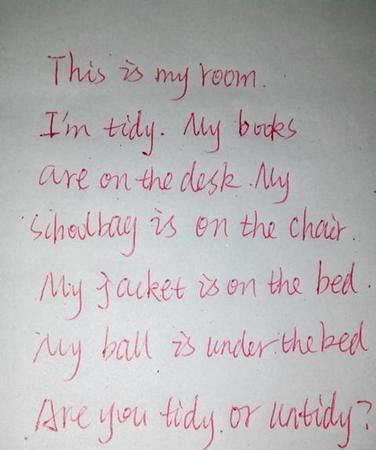 This is my room.
I'm tidy. My books
are on the desk. My
schoolbag is on the chair.
My jacket is on the bed.
My ball is under the bed
Are you tidy or untidy?